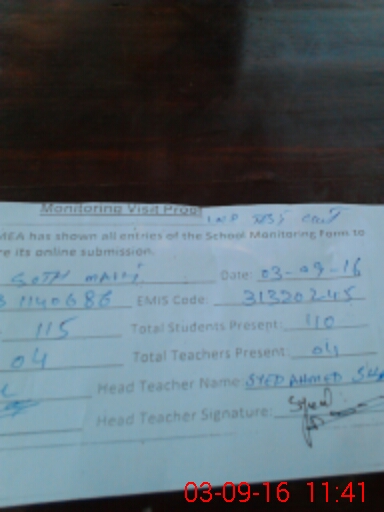 Monitoring Visit Proof
MEA has shown all entries of the School Monitoring Form to
re its online submission.
Date: 03-09-16
EMIS Code: 31320245
115 Total Students Present: 110
04 Total Teachers Present: 04
Head Teacher Name: SYED AHMED
Head Teacher Signature:
03-09-16 11:41